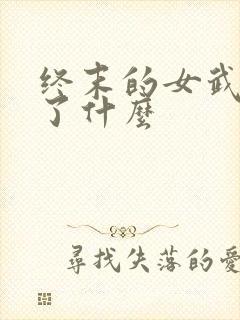 终末的女武
了什麼
尋找失落的愛